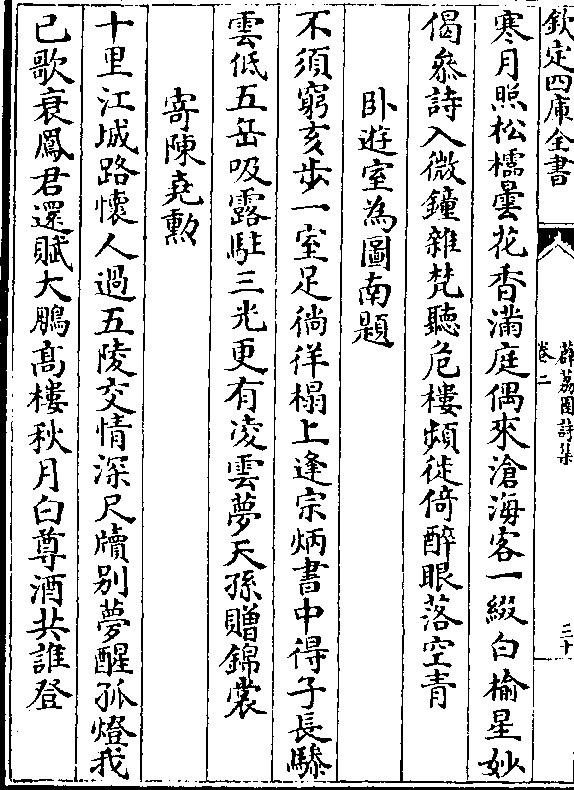 欽定四庫全書
薜荔園詩集
卷二
三十
寒月照松櫺曇花香滿庭偶來滄海客一綴白榆星妙
偈叅詩入微鐘雜梵聽危樓頻徙倚醉眼落空青
卧遊室為圖南題
不須窮亥步一室足徜徉榻上逢宗炳書中得子長驂
雲低五岳吸露駐三光更有凌雲夢天孫贈錦裳
寄陳堯勲
十里江城路懷人過五陵交情深尺牘别夢醒孤燈我
已歌衰鳳君還賦大鵬高樓秋月白尊酒共誰登